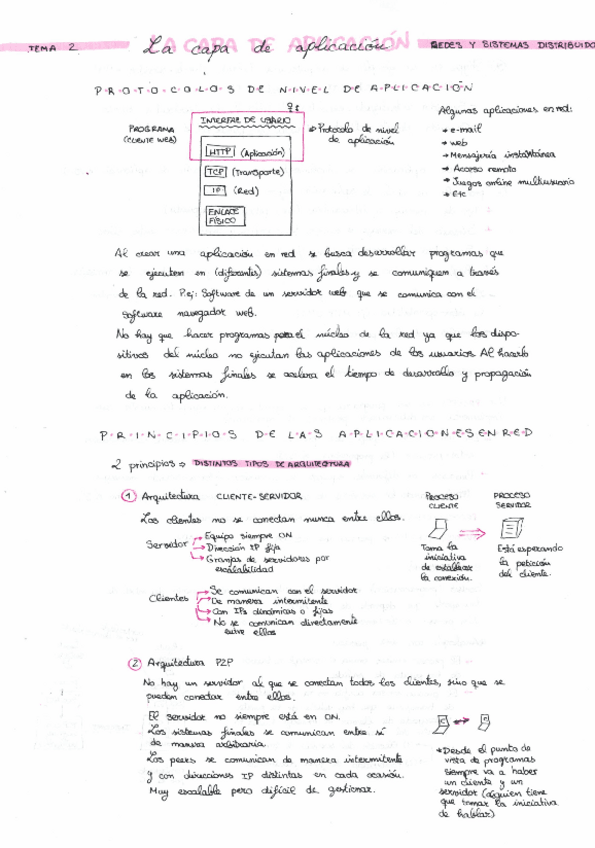 TEMA 2
La capa de aplicación
LA CAPA DE APLICACIÓN
REDES Y SISTEMAS DISTRIBUIDO
P·R·O·T·O·C·O·L·O·S D·E N·I·V·E·L D·E A·P·L·I·C·A·C·I·Ó·N
PROGRAMA
(CLIENTE WEB)
INTERFAZ DE USUARIO
HTTP (Aplicación)
TCP (Transporte)
IP (Red)
ENLACE
FÍSICO
Protocolo de nivel
de aplicación
Algunas aplicaciones en red:
→ e-mail
→ web
→ Mensajería instantánea
→ Acceso remoto
→ Juegos online multiusuario
→ Etc
Al crear una aplicación en red se busca desarrollar programas que
se ejecuten en (diferentes) sistemas finales y se comuniquen a través
de la red. P.ej: Software de un servidor web que se comunica con el
software navegador web.
No hay que hacer programas para el núcleo de la red ya que los dispo-
sitivos del núcleo no ejecutan las aplicaciones de los usuarios. Al hacerlo
en los sistemas finales se acelera el tiempo de desarrollo y propagación
de la aplicación.
P·R·I·N·C·I·P·I·O·S D·E L·A·S A·P·L·I·C·A·C·I·O·N·E·S E·N R·E·D
2 principios ⇒ DISTINTOS TIPOS DE ARQUITECTURA
① Arquitectura CLIENTE-SERVIDOR
Los clientes no se conectan nunca entre ellos.
Servidor
→ Equipo siempre ON
→ Dirección IP fija
→ Granjas de servidores por
escalabilidad
Clientes
→ Se comunican con el servidor
→ De manera intermitente
→ Con IPs dinámicas o fijas
→ No se comunican directamente
entre ellos
PROCESO
CLIENTE
Toma la
iniciativa
de establecer
la conexión.
PROCESO
SERVIDOR
Está esperando
la petición
del cliente.
② Arquitectura P2P
No hay un servidor al que se conectan todos los clientes, sino que se
pueden conectar entre ellos.
El servidor no siempre está en ON.
Los sistemas finales se comunican entre sí
de manera arbitraria.
Los peers se comunican de manera intermitente
y con direcciones IP distintas en cada ocasión.
Muy escalable pero difícil de gestionar.
*Desde el punto de
vista de programas
siempre va a haber
un cliente y un
servidor (alguien tiene
que tomar la iniciativa
de hablar)